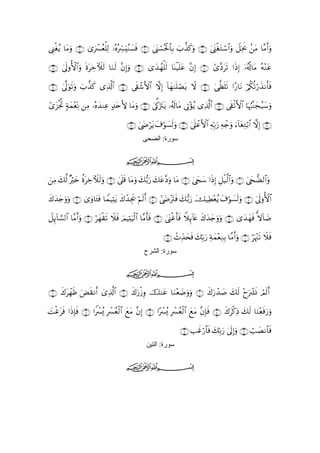 وَأَمَّا مَنۢ بَخِلَ وَٱسْتَغْنَىٰ ۝ وَكَذَّبَ بِٱلْحُسْنَىٰ ۝ فَسَنُيَسِّرُهُۥ لِلْعُسْرَىٰ ۝ وَمَا يُغْنِى
عَنْهُ مَالُهُۥٓ إِذَا تَرَدَّىٰٓ ۝ إِنَّ عَلَيْنَا لَلْهُدَىٰ ۝ وَإِنَّ لَنَا لَلْـَٔاخِرَةَ وَٱلْأُولَىٰ ۝
فَأَنذَرْتُكُمْ نَارًا تَلَظَّىٰ ۝ لَا يَصْلَىٰهَآ إِلَّا ٱلْأَشْقَى ۝ ٱلَّذِى كَذَّبَ وَتَوَلَّىٰ ۝
وَسَيُجَنَّبُهَا ٱلْأَتْقَى ۝ ٱلَّذِى يُؤْتِى مَالَهُۥ يَتَزَكَّىٰ ۝ وَمَا لِأَحَدٍ عِندَهُۥ مِن نِّعْمَةٍ تُجْزَىٰٓ
۝ إِلَّا ٱبْتِغَآءَ وَجْهِ رَبِّهِ ٱلْأَعْلَىٰ ۝ وَلَسَوْفَ يَرْضَىٰ ۝
سورة: الضحى
بسم الله الرحمن الرحيم
وَٱلضُّحَىٰ ۝ وَٱلَّيْلِ إِذَا سَجَىٰ ۝ مَا وَدَّعَكَ رَبُّكَ وَمَا قَلَىٰ ۝ وَلَلْـَٔاخِرَةُ خَيْرٌ لَّكَ مِنَ
ٱلْأُولَىٰ ۝ وَلَسَوْفَ يُعْطِيكَ رَبُّكَ فَتَرْضَىٰٓ ۝ أَلَمْ يَجِدْكَ يَتِيمًا فَـَٔاوَىٰ ۝ وَوَجَدَكَ
ضَآلًّا فَهَدَىٰ ۝ وَوَجَدَكَ عَآئِلًا فَأَغْنَىٰ ۝ فَأَمَّا ٱلْيَتِيمَ فَلَا تَقْهَرْ ۝ وَأَمَّا ٱلسَّآئِلَ
فَلَا تَنْهَرْ ۝ وَأَمَّا بِنِعْمَةِ رَبِّكَ فَحَدِّثْ ۝
سورة: الشرح
بسم الله الرحمن الرحيم
أَلَمْ نَشْرَحْ لَكَ صَدْرَكَ ۝ وَوَضَعْنَا عَنكَ وِزْرَكَ ۝ ٱلَّذِىٓ أَنقَضَ ظَهْرَكَ ۝
وَرَفَعْنَا لَكَ ذِكْرَكَ ۝ فَإِنَّ مَعَ ٱلْعُسْرِ يُسْرًا ۝ إِنَّ مَعَ ٱلْعُسْرِ يُسْرًا ۝ فَإِذَا فَرَغْتَ
فَٱنصَبْ ۝ وَإِلَىٰ رَبِّكَ فَٱرْغَب ۝
سورة: التتين
بسم الله الرحمن الرحيم